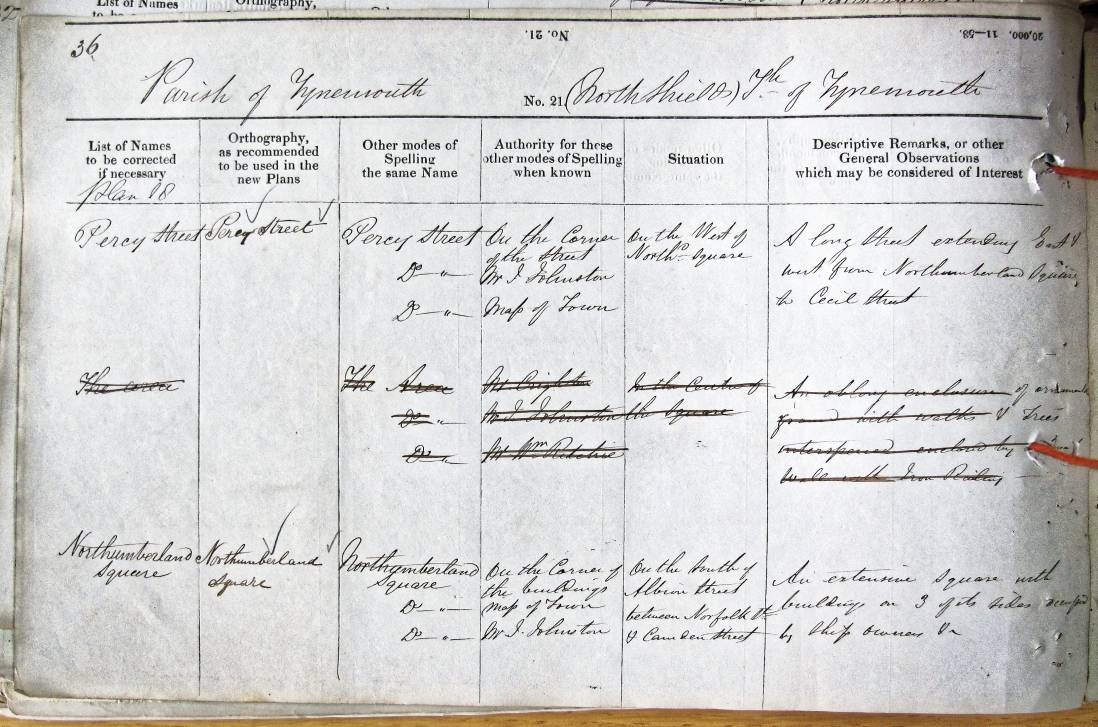 List of Names Orthography,
36
No. 21.
20,000. 11—58.
Parish of Tynemouth No. 21 (North Shields) Th of Tynemouth
List of Names
to be corrected
if necessary
Plan 18
Orthography,
as recommended
to be used in the
new Plans
Other modes of
Spelling
the same Name
Authority for these
other modes of Spelling
when known
Situation
Descriptive Remarks, or other
General Observations
which may be considered of Interest
Percy Street
Percy Street
Percy Street
Do "
Do "
On the Corner
of the Street
Mr J. Johnston
Map of Town
On the West of
Northd. Square
A long Street extending East &
west from Northumberland Square
to Cecil Street
The area
The Area
Do "
Do "
Mr Crighton
Mr J. Johnston
Mr Wm Ritchie
In the Centre of
the Square
An oblong enclosure of
ground with walks & Trees
interspersed enclosed by
Wall with Iron Railing
Northumberland
Square
Northumberland
Square
Northumberland
Square
Do "
Do "
On the Corner of
the buildings
Map of Town
Mr J. Johnston
On the South of
Albion Street
between Norfolk St.
& Camden Street
An extensive Square with
buildings on 3 of its sides occupied
by Ship owners &c